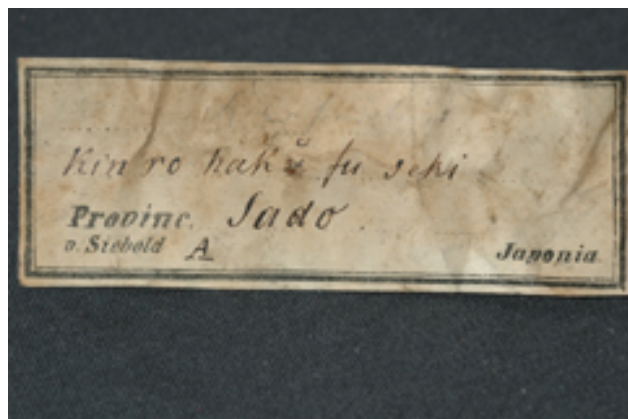 Kin ro hakŭ fu seki
Provinc. Sado
v. Siebold A Japonia